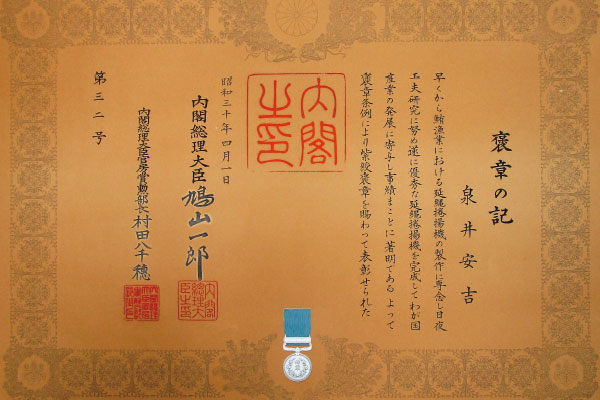 褒章の記
泉井安吉
早くから鮪漁業における延縄捲揚機の製作に専念し日夜
工夫研究に努め遂に優秀な延縄捲揚機を完成してわが国
産業の発展に寄与し事績まことに著明である よって
褒章条例により紫綬褒章を賜わって表彰せられた
内閣之印
昭和三十年四月一日
内閣総理大臣 鳩山一郎
内閣総理大臣之印
内閣総理大臣官房賞勲部長 村田八千穂
第三二号